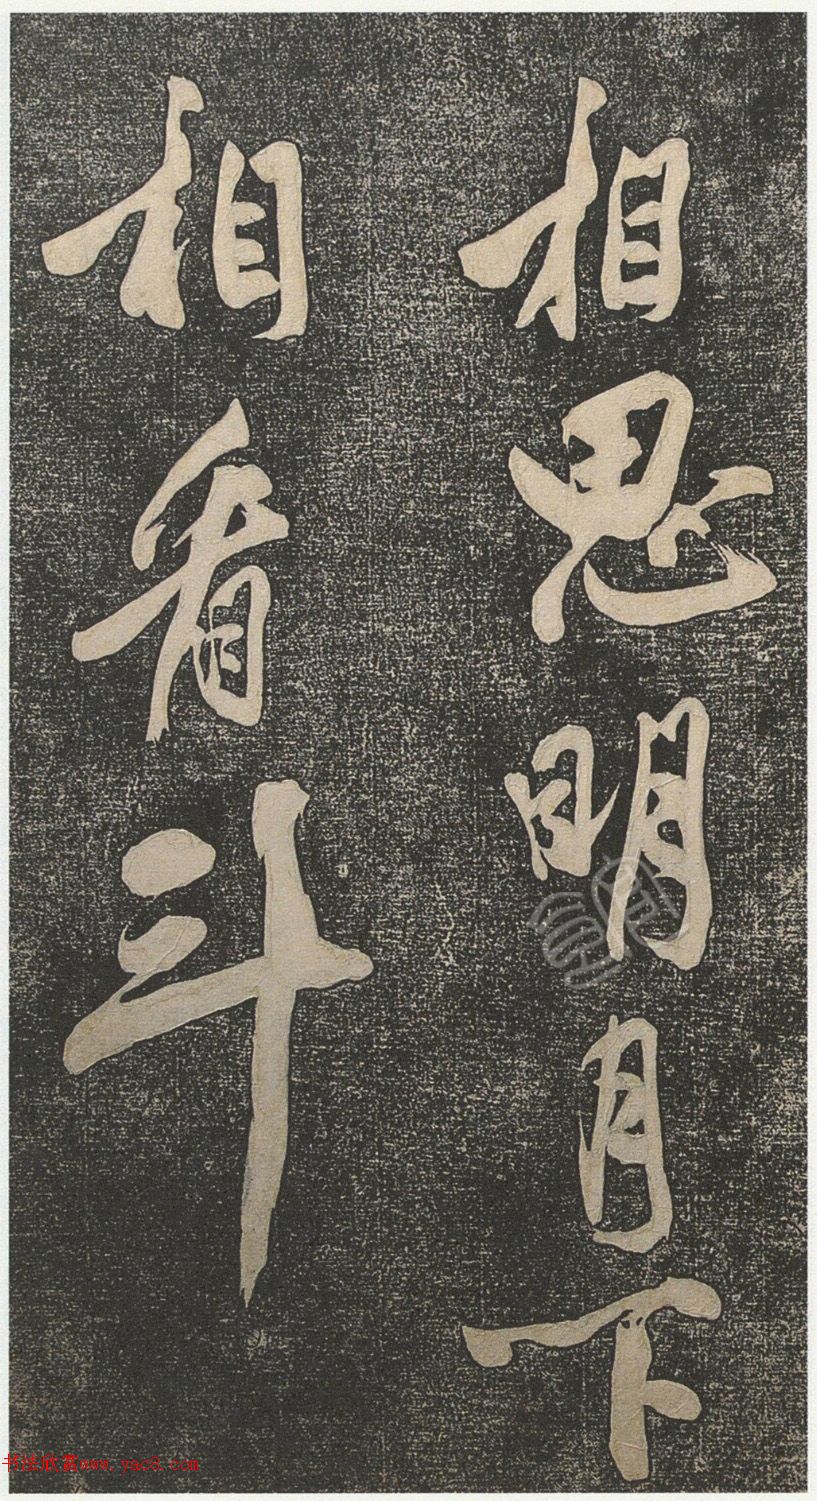 相思明月下
相看斗
书法欣赏www.yac8.com